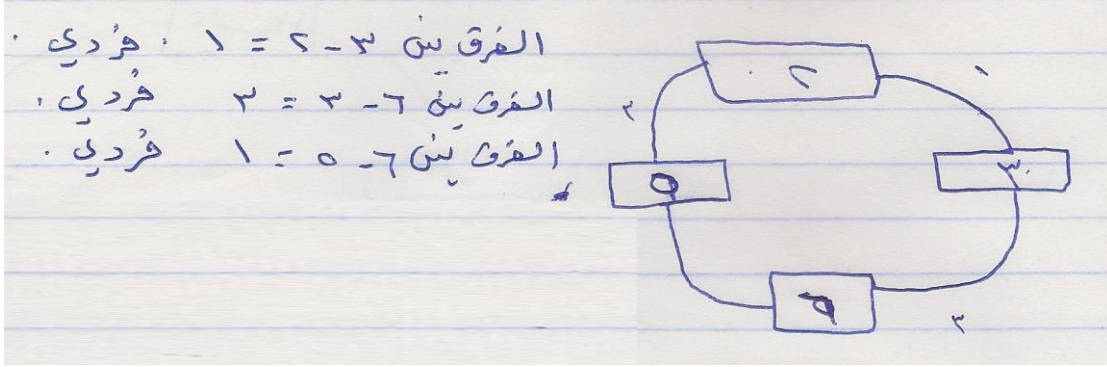 الفرق بين ٣ - ٢ = ١ . فردي .
الفرق بين ٦ - ٣ = ٣ فردي .
الفرق بين ٦ - ٥ = ١ فردي .
٢
١
٣
٥
٣
٦
٣